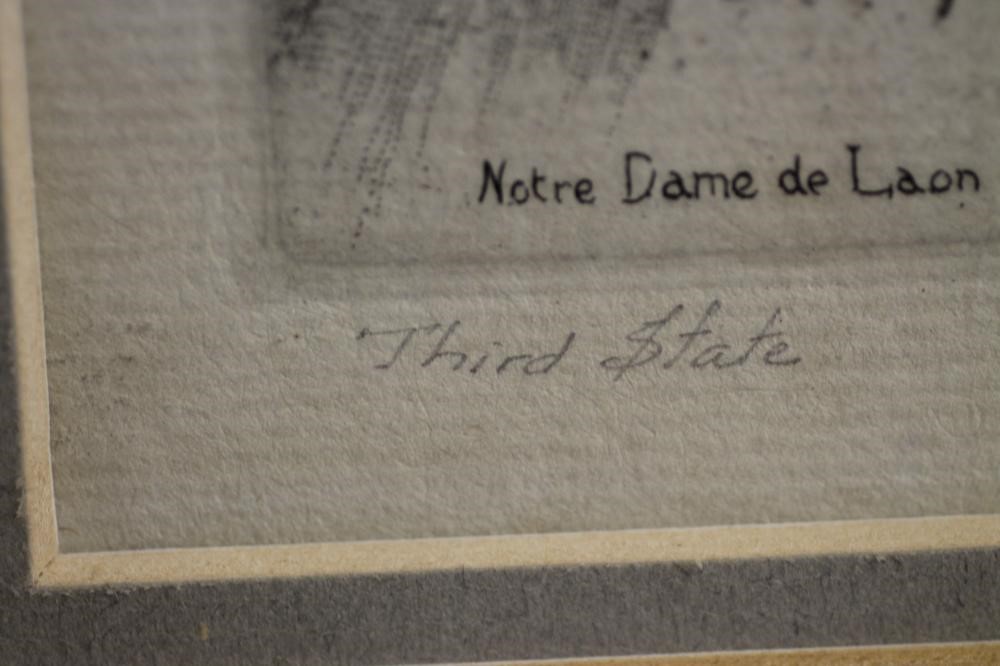 Notre Dame de Laon
Third State